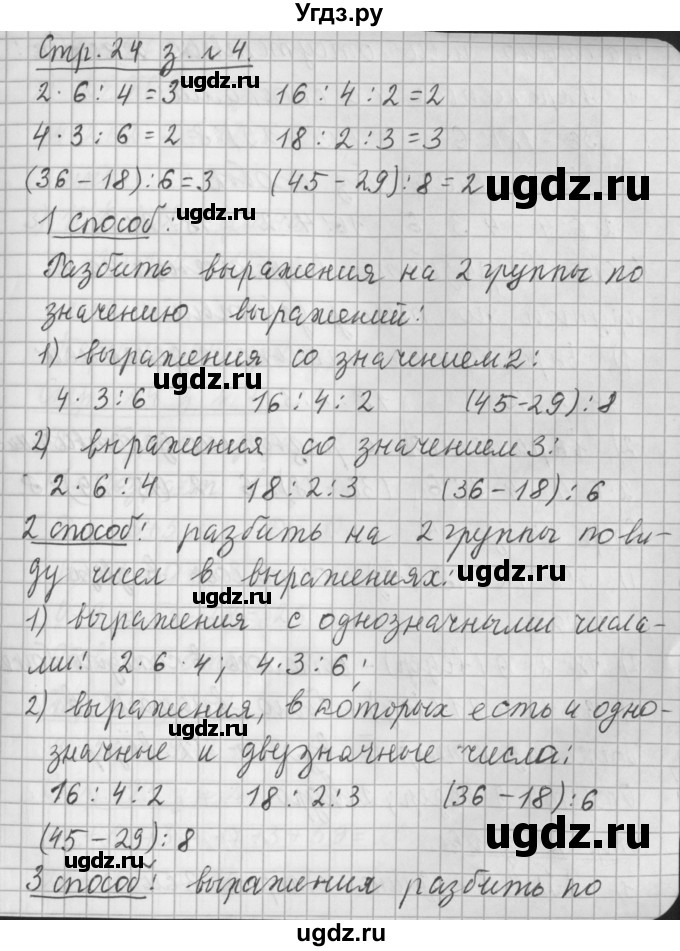 Угдз.ру
Стр. 24 з. № 4.
ugdz.ru
2 · 6 : 4 = 3 16 : 4 : 2 = 2
4 · 3 : 6 = 2 18 : 2 : 3 = 3
ugdz.ru ugdz.ru
(36 - 18) : 6 = 3 (45 - 29) : 8 = 2
ugdz.ru
1 способ:
Разбить выражения на 2 группы по
значению выражений:
1) выражения со значением 2:
ugdz.ru
4 · 3 : 6 16 : 4 : 2 (45 - 29) : 8
ugdz.ru
2) выражения со значением 3:
2 · 6 : 4 18 : 2 : 3 (36 - 18) : 6
2 способ: разбить на 2 группы по ви-
ugdz.ru
ду чисел в выражениях:
ugdz.ru
1) выражения с однозначными числа-
ми: 2 · 6 · 4; 4 · 3 : 6;
2) выражения, в которых есть и одно-
значные и двузначные числа:
16 : 4 : 2 18 : 2 : 3 (36 - 18) : 6
ugdz.ru
(45 - 29) : 8
ugdz.ru
3 способ: выражения разбить по
ugdz.ru
ugdz.ru